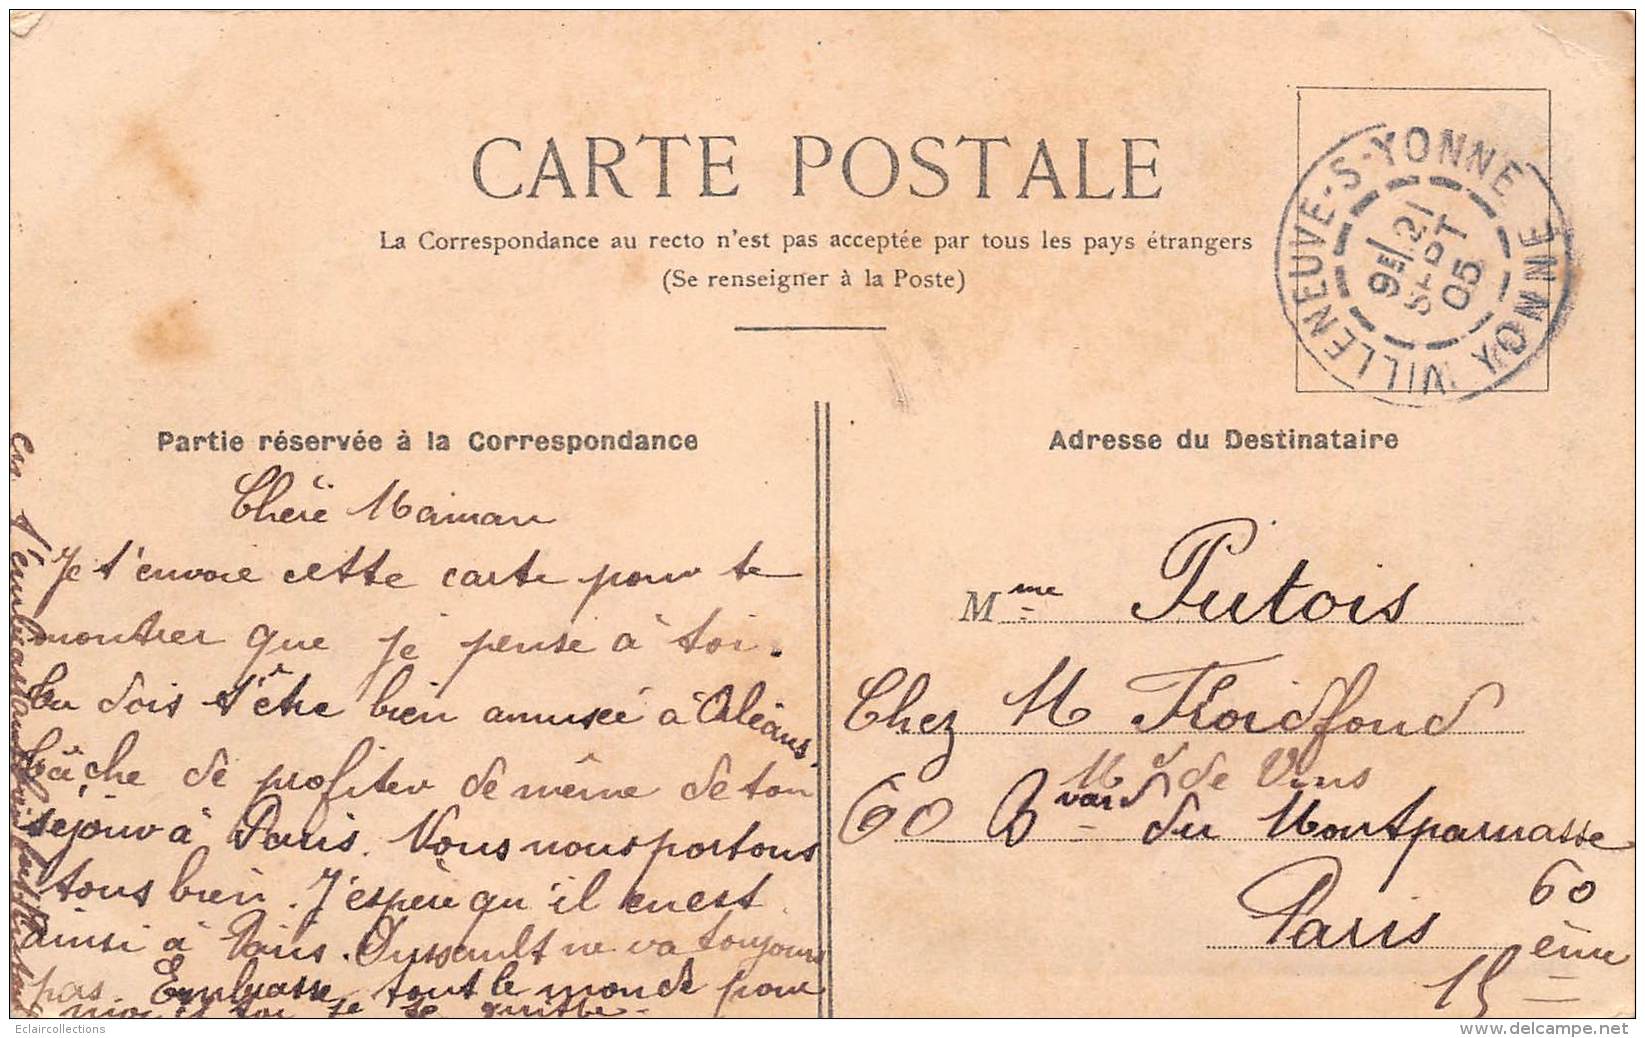 CARTE POSTALE
La Correspondance au recto n'est pas acceptée par tous les pays étrangers
(Se renseigner à la Poste)
VILLENEUVE-S-YONNE YONNE
9E 21
SEPT
05
Partie réservée à la Correspondance
Chère Maman
Je t'envoie cette carte pour te
montrer que je pense à toi.
Tu dois t'être bien amusée à Orléans,
tâche de profiter de même de ton
séjour à Paris. Nous nous portons
tous bien. J'espère qu'il en est
ainsi à Paris. ne va toujours
pas. Embrasse tout le monde pour
moi et toi je te quitte
en t'embrassant bien
Adresse du Destinataire
Mme Putois
Chez M Froidfond
Md de Vins
60 Bvard du Montparnasse
60
Paris 15ème
Eclaircollections
www.delcampe.net